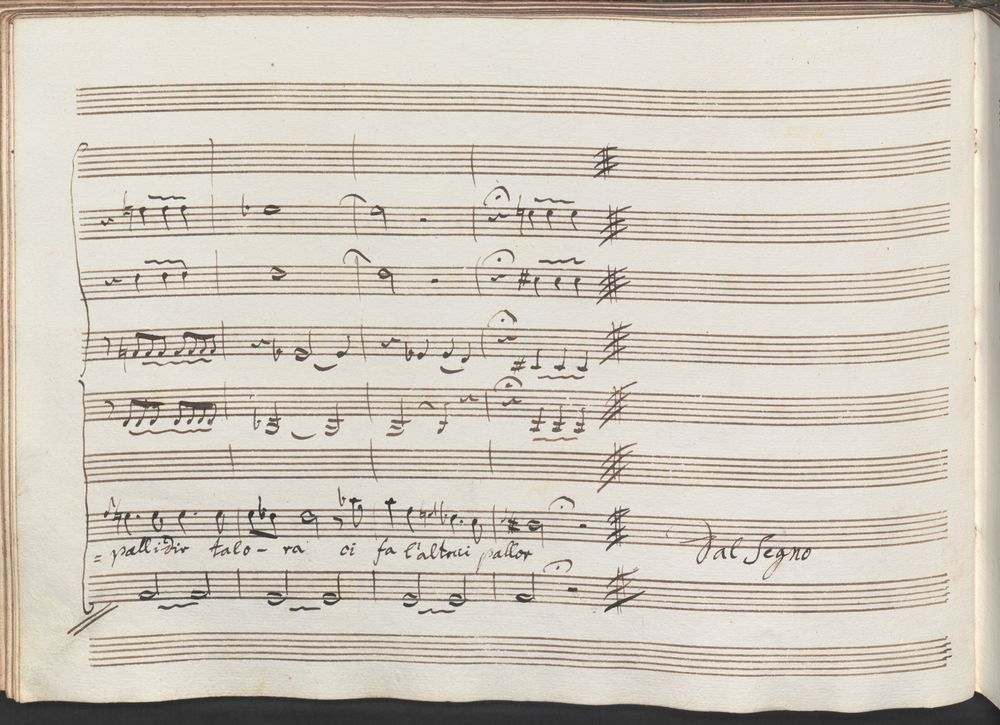 = pallidir talo-ra ci fa l'altrui pallor
Dal Segno